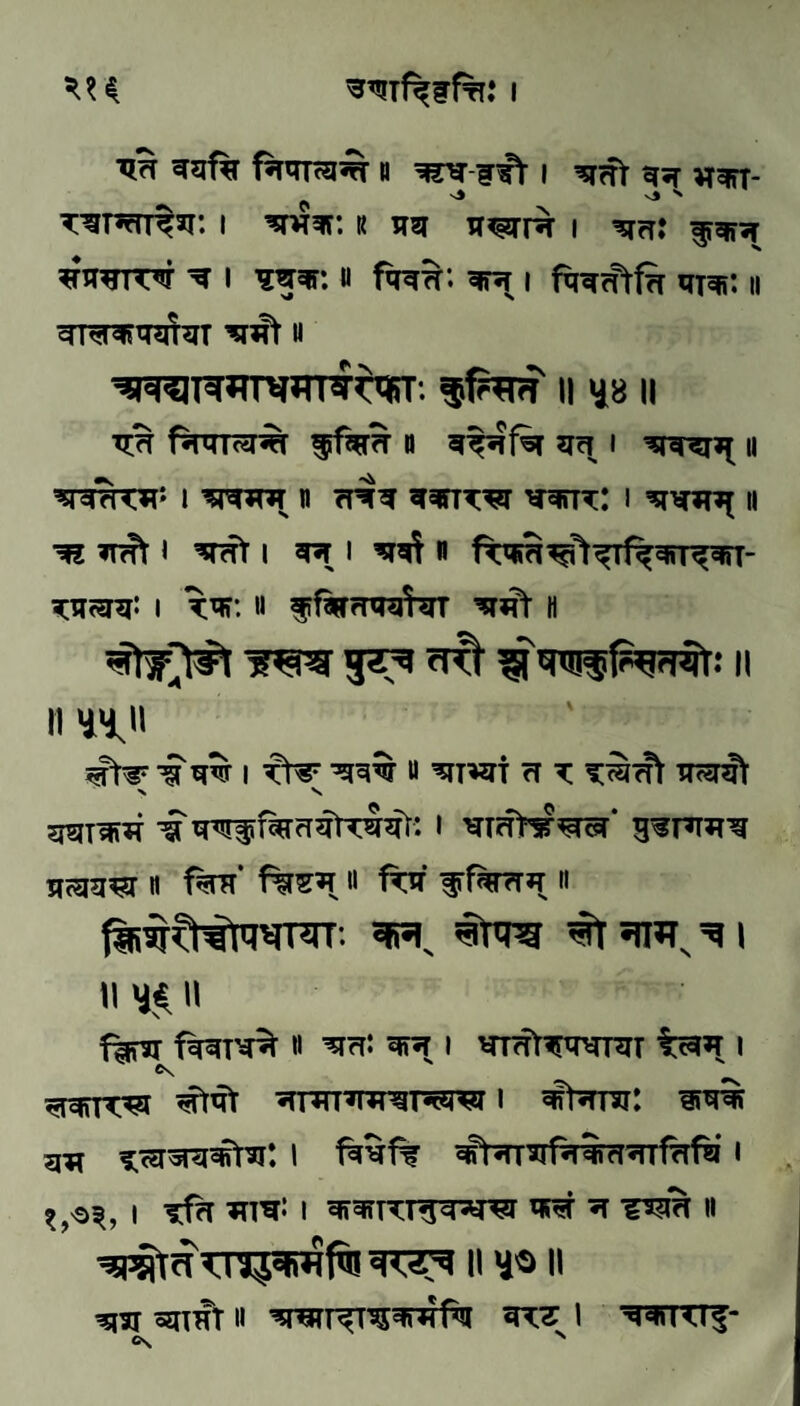 २१६ उणादिवृत्तिः ।
एते वयसि निपात्यन्ते ॥ ऋधु वृद्धौ । अतो वुन् भका-
रश्चान्तादेशः । अर्भकः ॥ प्रथ प्रख्याने । अतः कुकन्
संप्रसारणं च । पृथुकः ॥ पिबतेः कन् । पिबतीति पाकः ॥
बालकपर्याया अमी ॥
अवद्यावमाधमार्वरेफाः कुत्सिते ॥ ५४ ॥
एते निपात्यन्ते कुत्सिते ॥ वदेर्नञि यत् । अवद्यम् ॥
अवतेरमः । अवमम् ॥ तत्रैव वकारस्य धकारः । अधमम् ॥
ऋ गतौ । अतो । वन् । अर्वा ॥ रिफतेस्तौदादिकादका-
रप्रत्ययः । रेफः ॥ कुत्सितपर्याया अमी ॥
लीरीङो र्ह्रस्वश्च पुट् च तरौ श्लेषणकुत्सितयोः ॥
॥ ५५ ॥
लीङ् श्लेषणे । रीङ् श्रवणे ॥ आभ्यां त र इत्येतौ प्रत्ययौ
यथाक्रमं श्लेषणकुत्सितयोरर्थयोः । धातोर्ह्रस्वत्वं पुडागमश्च
प्रत्ययस्य ॥ लिप्तं श्लिष्टम् ॥ रिप्रं कुत्सितम् ॥
क्लिशेरीच्चोपधायाः कन् लोपश्च लो नाम् च ।
॥ ५६ ॥
क्लिशू विबाधने ॥ अतः कन् । धातोरुपधाया ईत्वम् ।
लकारस्य लोपो नामागमश्चान्त्यस्य । कीनाशः कृपणे
यम इत्यजयकोशः । विधेहि कीनाशनिकेतनातिथिं ।
१,७३, । इति माघः । ककारानुबन्धस्य फलं न दृश्यते ॥
अश्नोतेराशुकर्मणि वरट् च ॥ ५७ ॥
अशू व्याप्तौ ॥ अस्मादाशुकर्मणि वरट् । चकारादु-